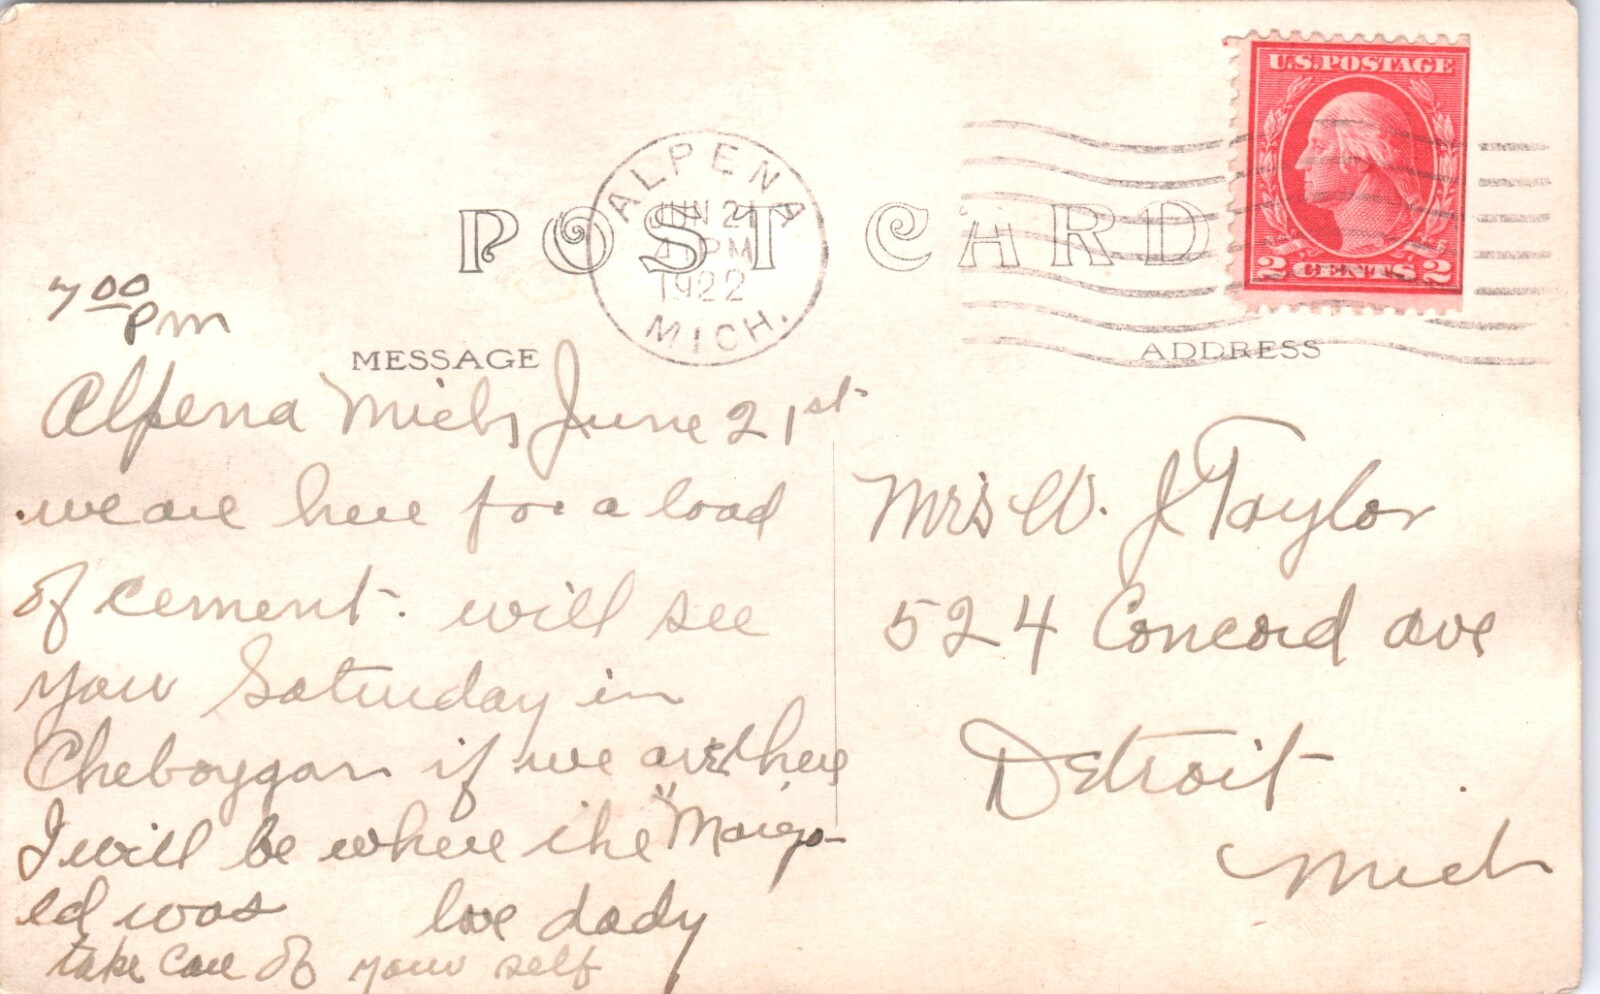 U.S. POSTAGE
2 CENTS 2
ALPENA
JUN 21
PM
1922
MICH.
POST CARD
MESSAGE
ADDRESS
7 00
Pm
Alpena Mich June 21st
we are here for a load
of cement. will see
you Saturday in
Cheboygan if we are there
I will be where the "Marigo-
ld was love dady
take care of your self
Mrs W. J Taylor
524 Concord ave
Detroit
Mich